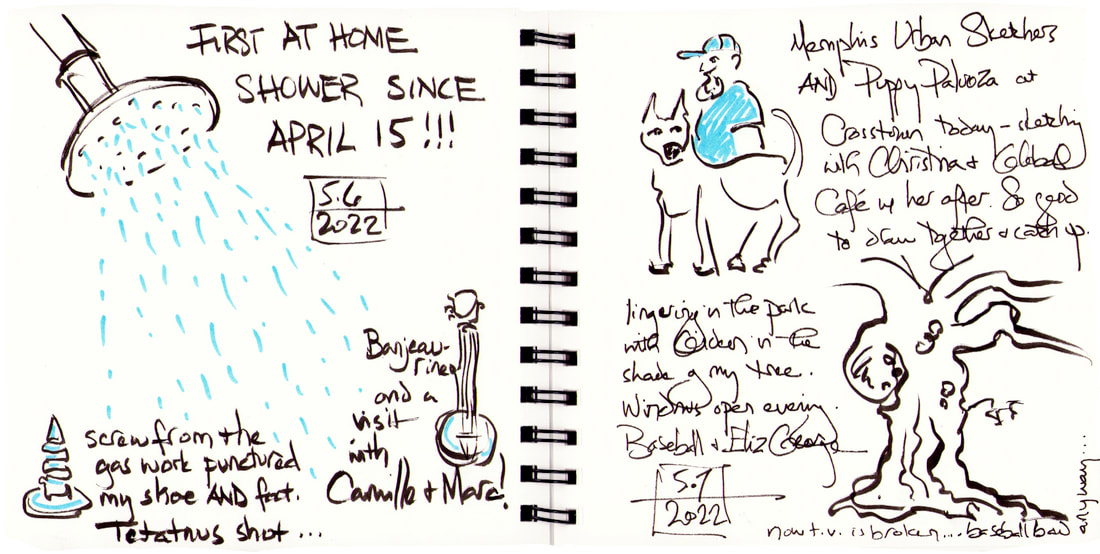 FIRST AT HOME
SHOWER SINCE
APRIL 15!!!
5.6
2022
Banjeau-
rine
and a
visit
with
Camille + Marc!
screw from the
gas work punctured
my shoe AND foot.
Tetatnus shot...
Memphis Urban Sketchers
AND Puppy Palooza at
Crosstown today - sketching
with Christina + Global
Café w her after. So good
to draw together + catch up.
lingering in the park
with in the
shade of my tree.
Windows open evening.
Baseball + Eliz George
5.7
2022
now t.v. is broken.... baseball bad
anyway...